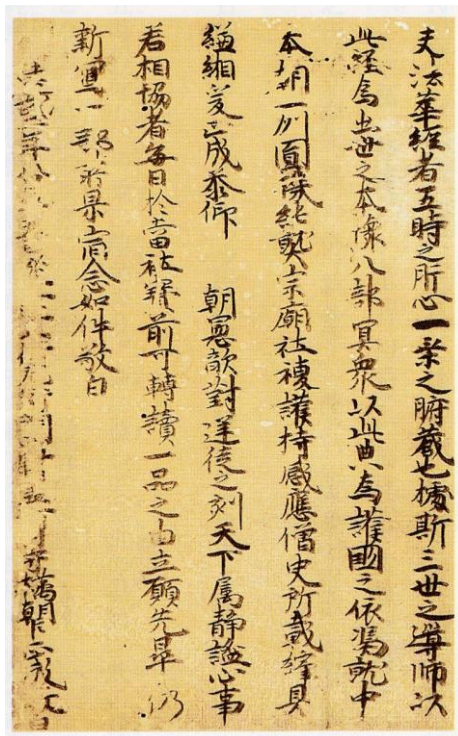 夫法華經者五時之肝心一乘之腑藏也據斯三世之導師以
此經為出世之本懷八部冥衆以此典為護國之依憑就中
本朝一州圓機純熟宗廟社稷護持感應僧史所載縡具
縑緗爰正成忝仰 朝恩敵對逆徒之刻天下属靜謐心事
若相協者毎日於當社壇前可轉讀一品之由立願先畢仍
新寫一部所果宿念如件敬白
橘朝臣